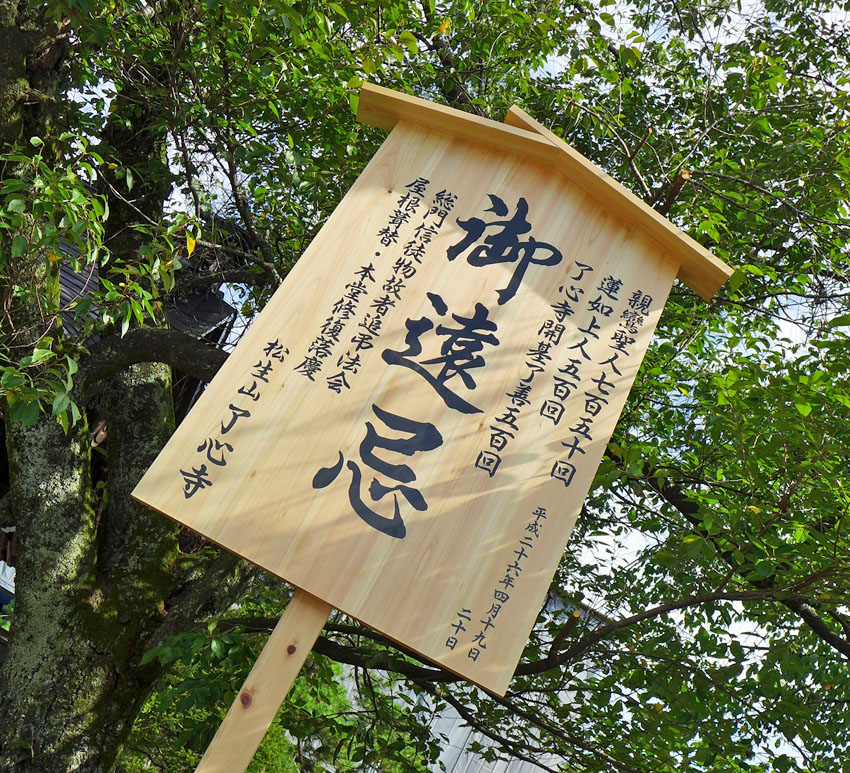 親鸞聖人七百五十回
蓮如上人五百回
了心寺開基了善五百回
平成二十六年四月十九日
二十日
御遠忌
総門信徒物故者追弔法会
屋根葺替・本堂修復落慶
松生山了心寺